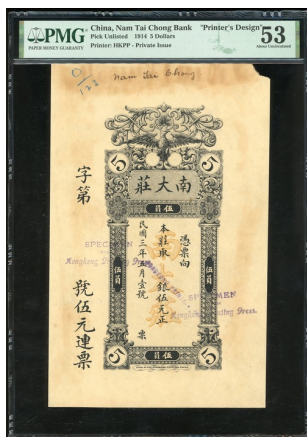 PMG
PAPER MONEY GUARANTY
China, Nam Tai Chong Bank "Printer's Design"
Pick Unlisted 1914 5 Dollars
Printer: HKPP - Private Issue
53
About Uncirculated
Nam Tai Chong
5
5
南大莊
員伍
字第
號伍元連票
民國三年五月壹號
本莊取銀伍元正
憑票向
票
伍員
伍員
SPECIMEN
Hongkong Printing Press
SPECIMEN
Hongkong Printing Press.
員伍
5
5